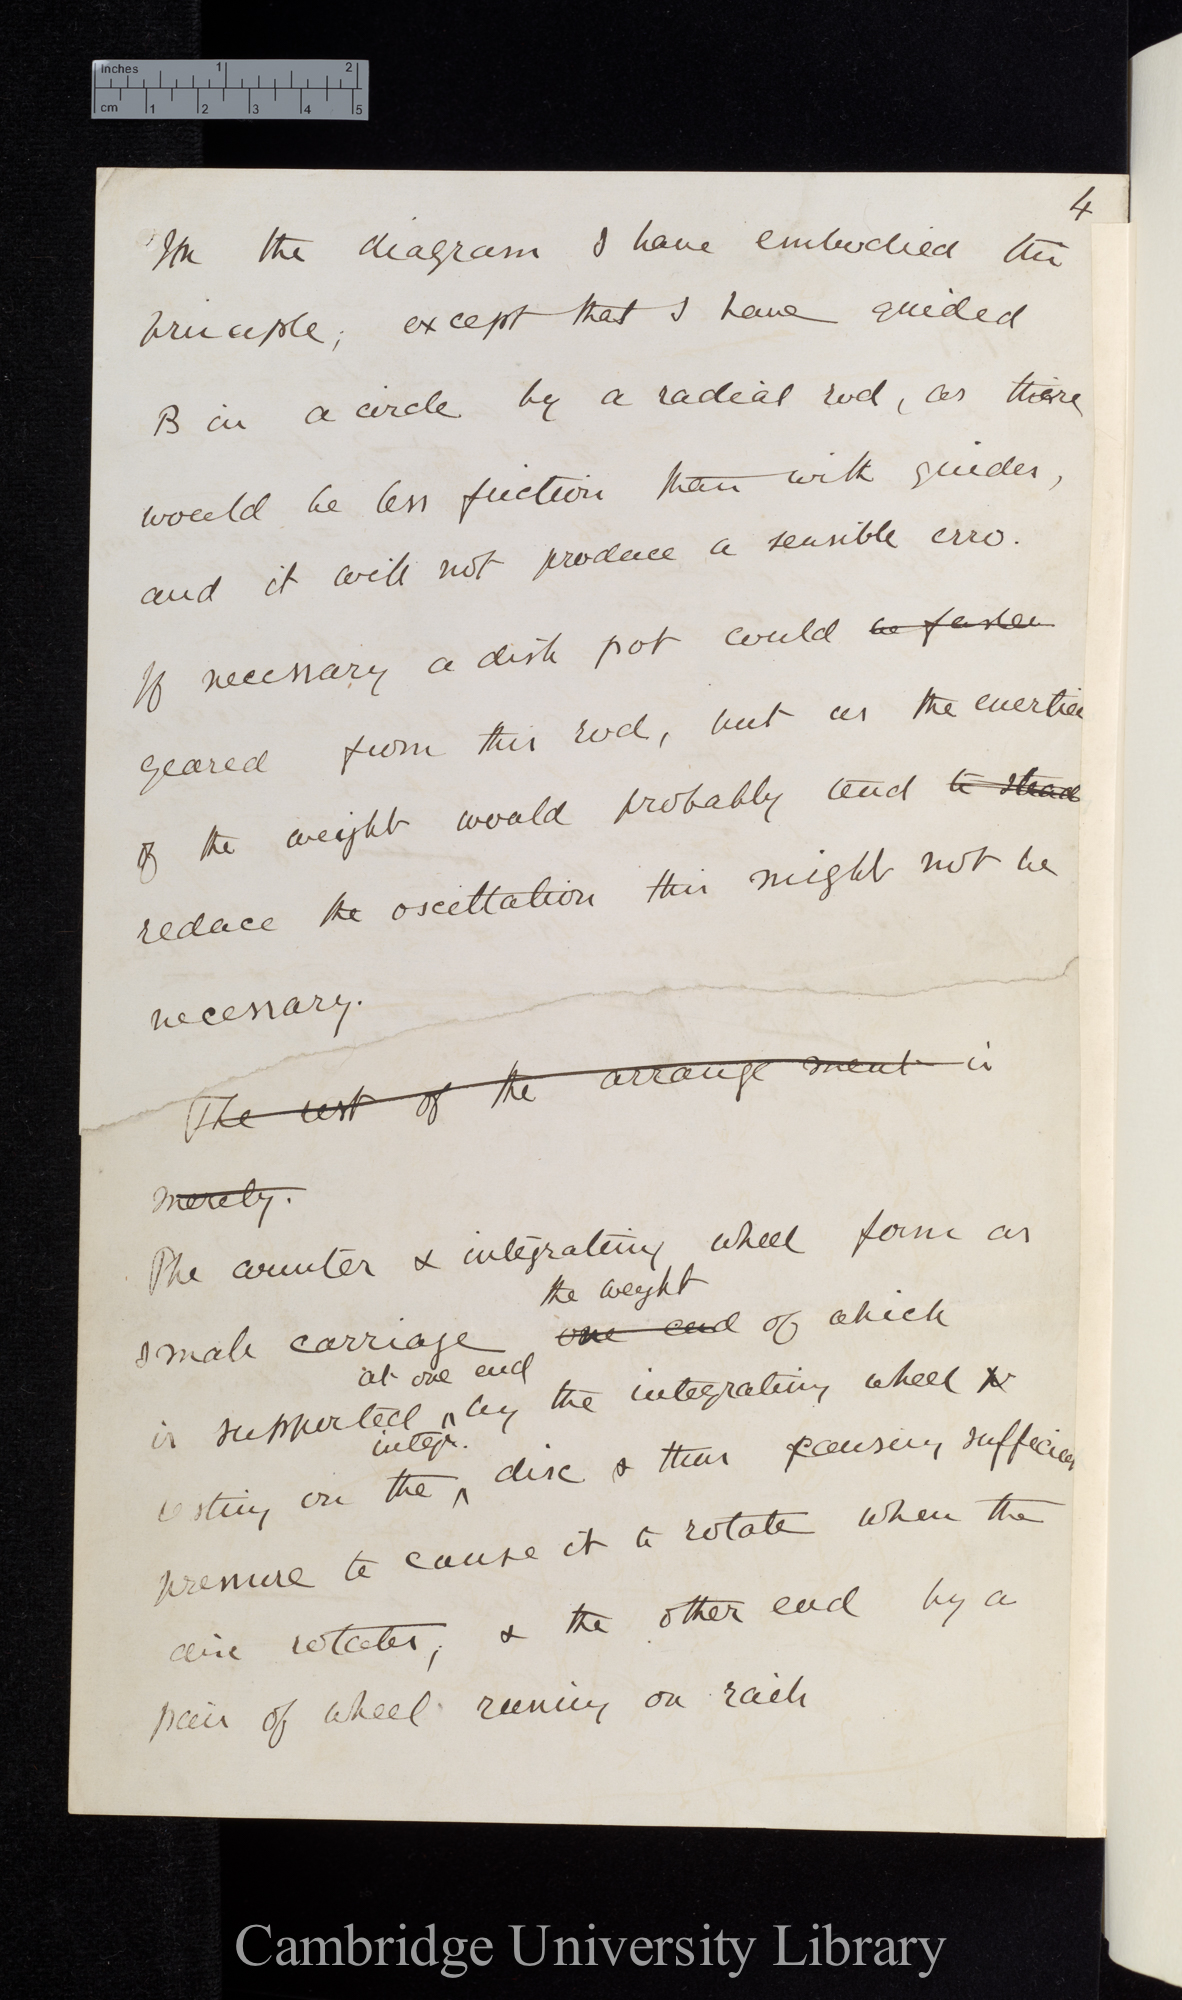 Inches 1 2
cm 1 2 3 4 5
4
In the diagram I have embodied this
principle; except that I have guided
B in a circle by a radial rod, as there
would be less friction than with guides,
and it will not produce a sensible erro.
If necessary a dish pot could be fasten
geared from this rod, but as the enertia
of the weight would probably tend to stead
reduce the oscillation this might not be
necessary.
The rest of the arrange ment is
merely.
The counter & integrating wheel form as
the weight
small carriage one end of which
at one end
is supported by the integrating wheel
integr.
resting on the disc & thus causing sufficien
pressure to cause it to rotate when the
disc rotates, & the other end by a
pair of wheel running on rails
Cambridge University Library